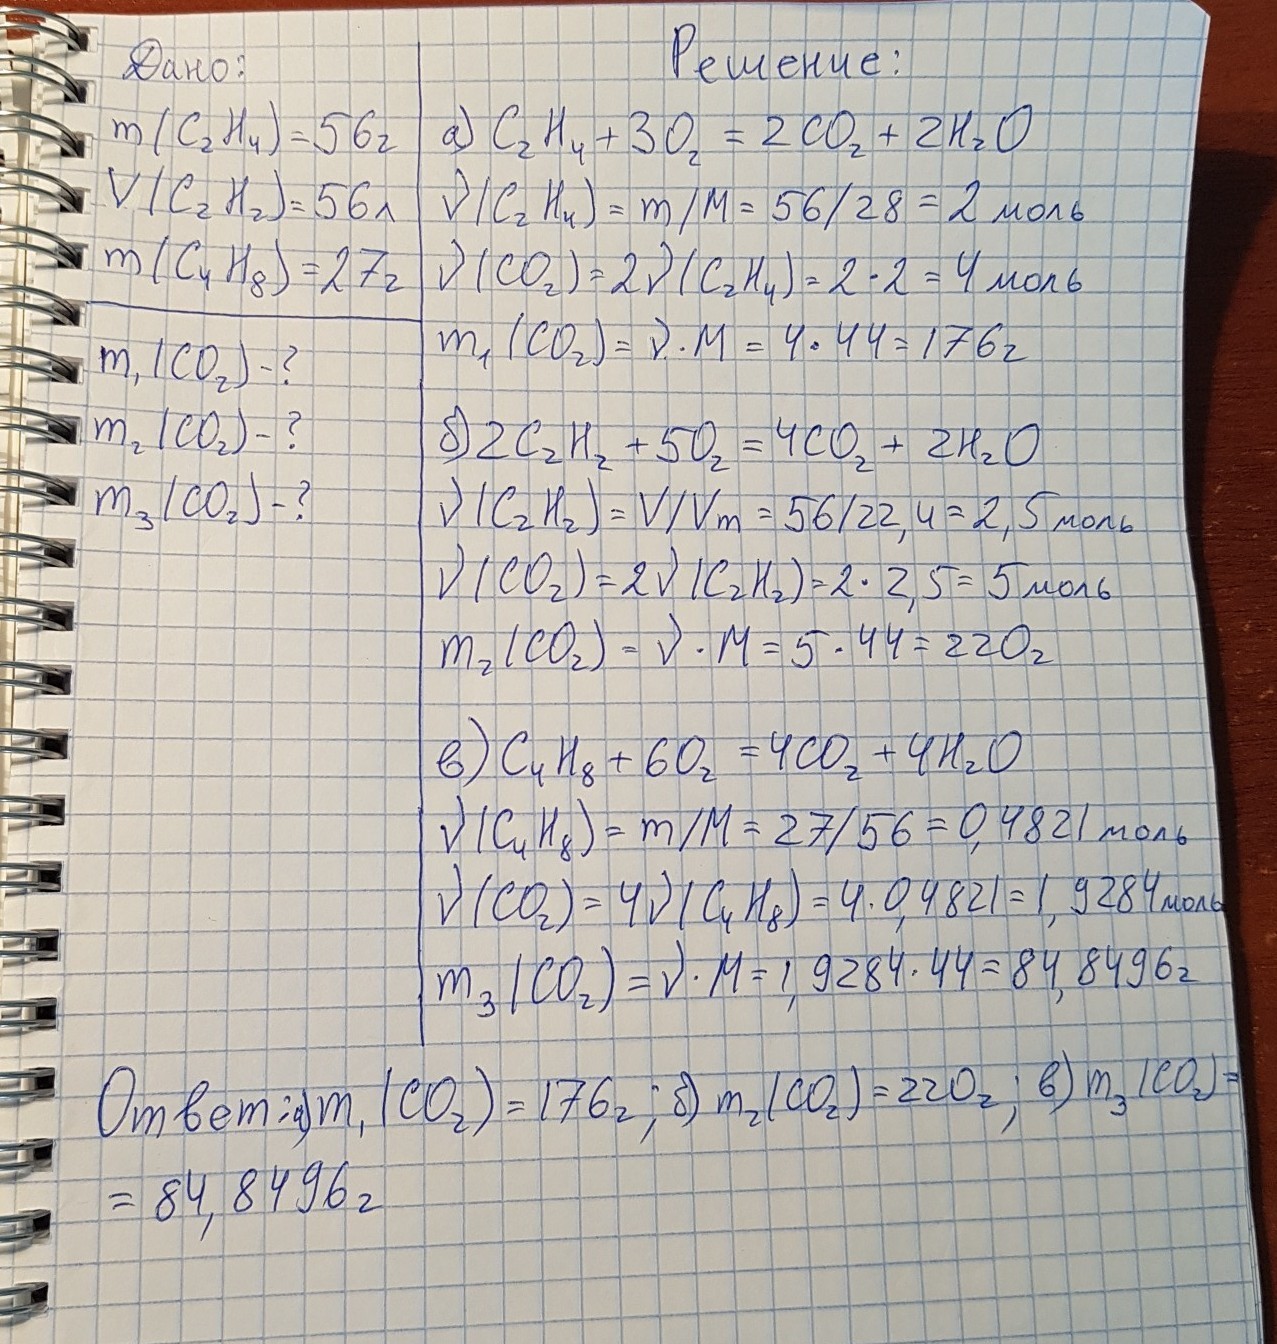 Дано:
m(C₂H₄)=56г
V(C₂H₂)=56л
m(C₄H₈)=27г
m₁(CO₂)-?
m₂(CO₂)-?
m₃(CO₂)-?
Решение:
а) C₂H₄+3O₂=2CO₂+2H₂O
ν(C₂H₄)=m/M=56/28=2 моль
ν(CO₂)=2ν(C₂H₄)=2·2=4 моль
m₁(CO₂)=ν·M=4·44=176г
б) 2C₂H₂+5O₂=4CO₂+2H₂O
ν(C₂H₂)=V/Vm=56/22,4=2,5 моль
ν(CO₂)=2ν(C₂H₂)=2·2,5=5 моль
m₂(CO₂)=ν·M=5·44=220г
в) C₄H₈+6O₂=4CO₂+4H₂O
ν(C₄H₈)=m/M=27/56=0,4821 моль
ν(CO₂)=4ν(C₄H₈)=4·0,4821=1,9284 моль
m₃(CO₂)=ν·M=1,9284·44=84,8496г
Ответ: а) m₁(CO₂)=176г; б) m₂(CO₂)=220г; в) m₃(CO₂)=
=84,8496г